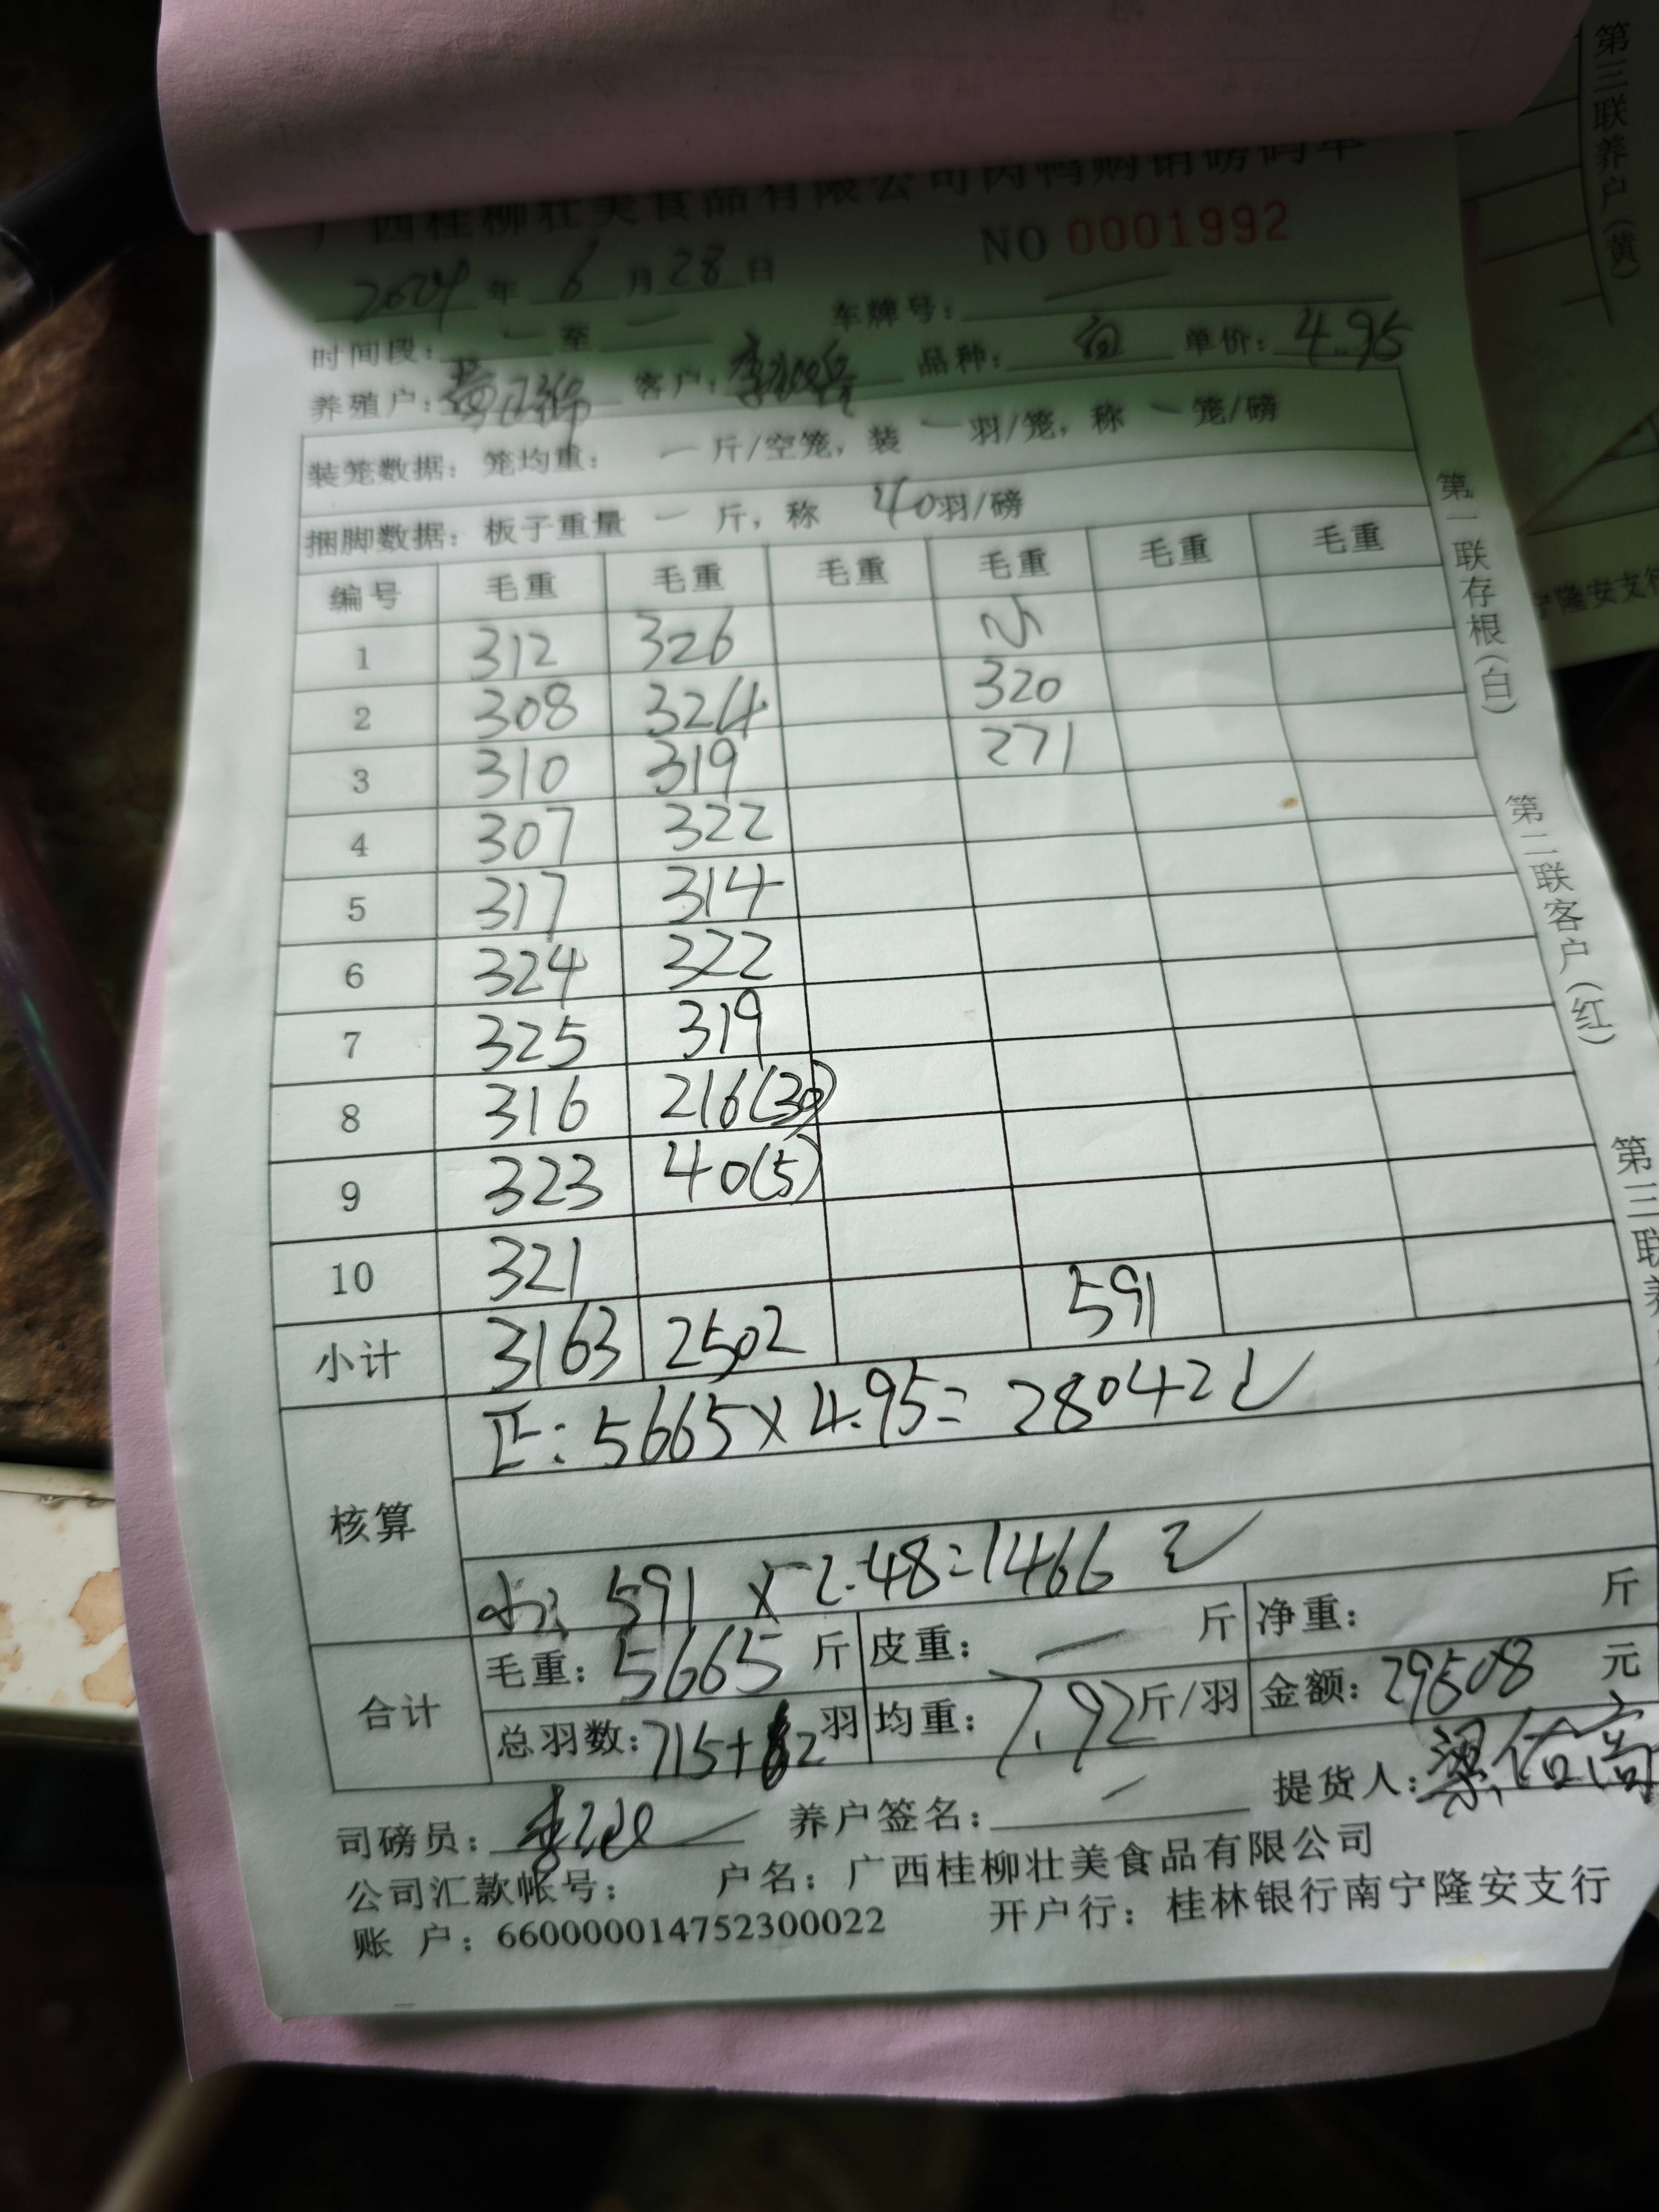 广西桂柳壮美食品有限公司肉鸭购销磅码单
NO 0001992
2024 年 6 月 28 日
时间段: 一 至 一 车牌号: 一
养殖户: 客户: 品种: 单价: 4.95
装笼数据: 笼均重: 一 斤/空笼, 装 一 羽/笼, 称 一 笼/磅
捆脚数据: 板子重量 一 斤, 称 40羽/磅
编号 毛重 毛重 毛重 毛重 毛重 毛重
1 312 326 小
2 308 324 320
3 310 319 271
4 307 322
5 317 314
6 324 322
7 325 319
8 316 216(30)
9 323 40(5)
10 321
小计 3163 2502 591
核算
正: 5665×4.95=28042
小: 591×2.48=1466
合计
毛重: 5665 斤 皮重: 一 斤 净重: 斤
总羽数: 715+82羽 均重: 7.92斤/羽 金额: 29508 元
司磅员: 养户签名: 一 提货人: 梁佑尚
公司汇款帐号: 户名: 广西桂柳壮美食品有限公司
账 户: 660000014752300022 开户行: 桂林银行南宁隆安支行
第一联存根(白)
第二联客户(红)
第三联养
第三联养户(黄)
宁隆安支行